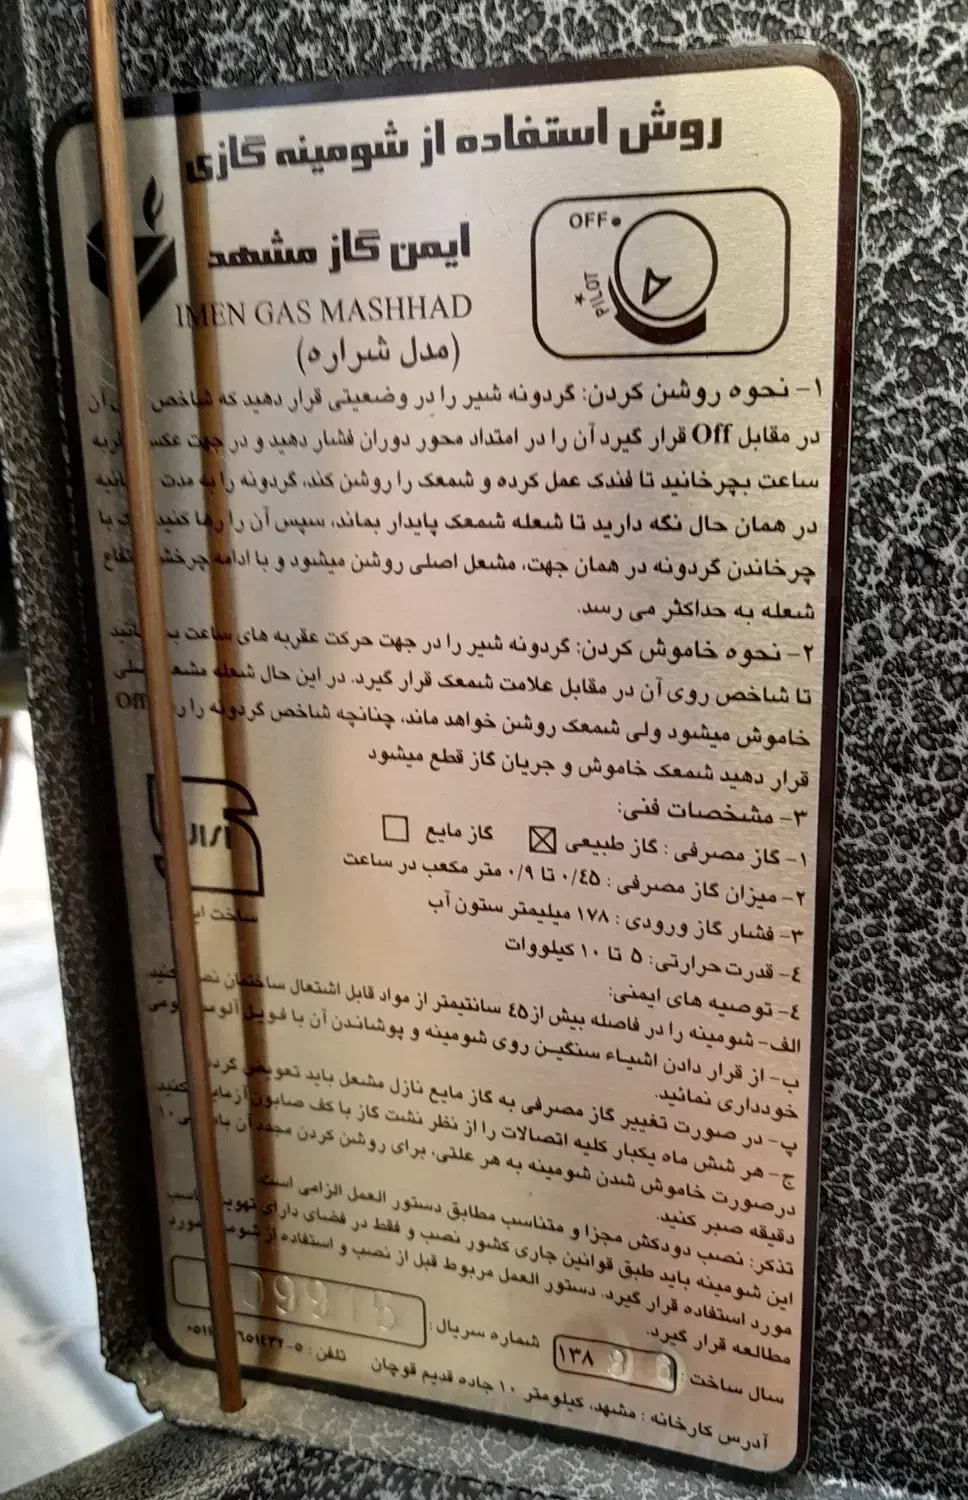 روش استفاده از شومینه گازی
OFF
PILOT
ایمن گاز مشهد
IMEN GAS MASHHAD
(مدل شراره)
۱- نحوه روشن کردن: گردونه شیر را در وضعیتی قرار دهید که شاخص آن
در مقابل Off قرار گیرد آن را در امتداد محور دوران فشار دهید و در جهت عکس
ساعت بچرخانید تا فندک عمل کرده و شمعک را روشن کند، گردونه را به مدت
در همان حال نگه دارید تا شعله شمعک پایدار بماند، سپس آن را رها کنید با
چرخاندن گردونه در همان جهت، مشعل اصلی روشن میشود و با ادامه چرخش
شعله به حداکثر می رسد.
۲- نحوه خاموش کردن: گردونه شیر را در جهت حرکت عقربه های ساعت
تا شاخص روی آن در مقابل علامت شمعک قرار گیرد. در این حال شعله
خاموش میشود ولی شمعک روشن خواهد ماند، چنانچه شاخص گردونه را Off
قرار دهید شمعک خاموش و جریان گاز قطع میشود
۳- مشخصات فنی:
۱- گاز مصرفی : گاز طبیعی ☒ گاز مایع ☐
۲- میزان گاز مصرفی : ۰/٤٥ تا ۰/۹ متر مکعب در ساعت
۳- فشار گاز ورودی : ۱۷۸ میلیمتر ستون آب
٤- قدرت حرارتی: ۵ تا ۱۰ کیلووات
ساخت
٤- توصیه های ایمنی:
الف- شومینه را در فاصله بیش از ٤٥ سانتیمتر از مواد قابل اشتعال ساختمان
ب- از قرار دادن اشیاء سنگین روی شومینه و پوشاندن آن با فویل
خودداری نمائید.
پ- در صورت تغییر گاز مصرفی به گاز مایع نازل مشعل باید تعویض
ج- هر شش ماه یکبار کلیه اتصالات را از نظر نشت گاز با کف صابون
درصورت خاموش شدن شومینه به هر علتی، برای روشن کردن مجدد آن ۱۰
دقیقه صبر کنید.
تذکر: نصب دودکش مجزا و متناسب مطابق دستور العمل الزامی است.
این شومینه باید طبق قوانین جاری کشور نصب و فقط در فضای دارای
مورد استفاده قرار گیرد. دستور العمل مربوط قبل از نصب و استفاده از
مطالعه قرار گیرد.
سال ساخت : ۱۳۸ شماره سریال: 09915
آدرس کارخانه : مشهد، کیلومتر ۱۰ جاده قدیم قوچان تلفن :